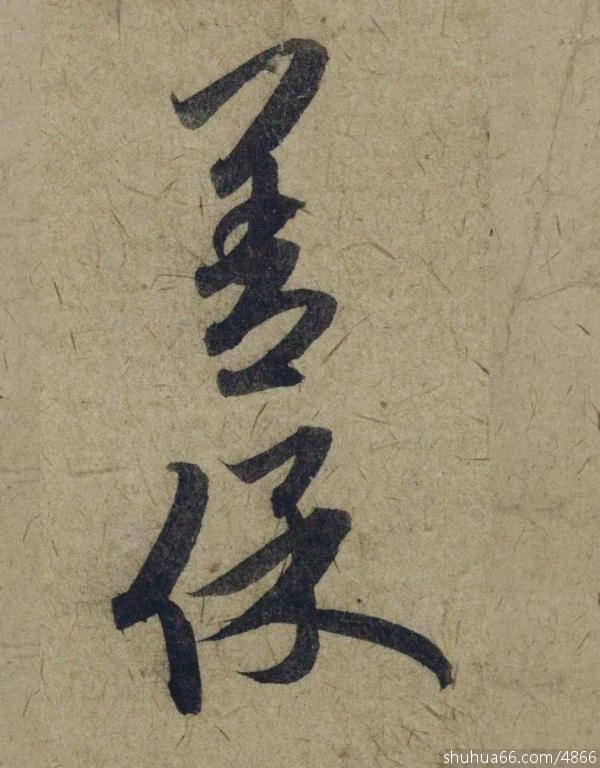 善保
shuhua66.com/4866